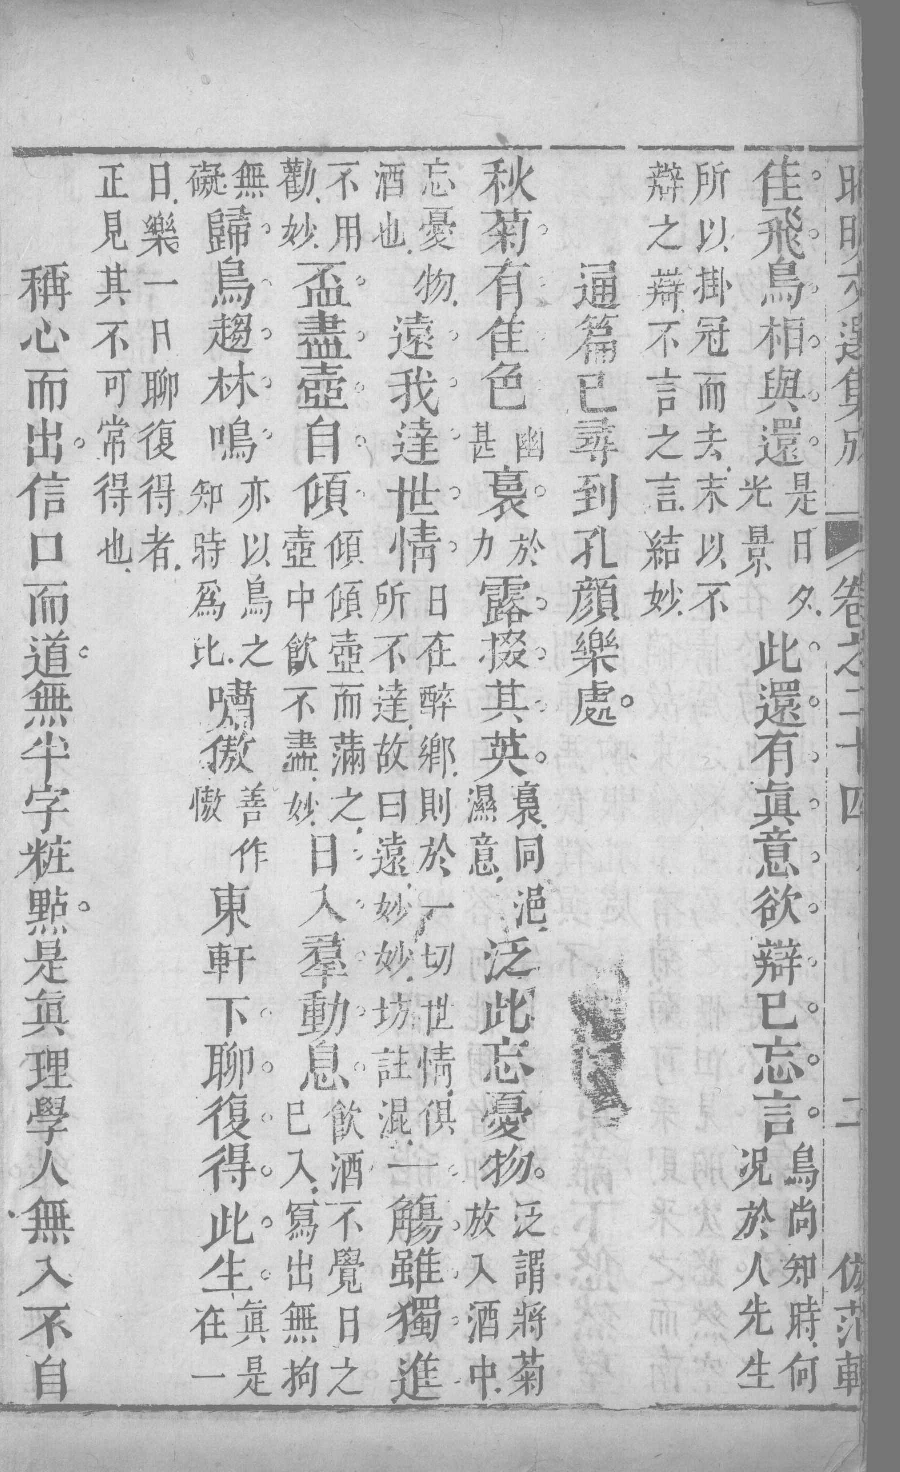 昭明文選集成 卷之二十四 二 倣范軒
佳飛鳥相與還是日夕光景此還有眞意欲辯已忘言鳥尚知時何況於人先生
所以掛冠而去末以不辯之辯不言之言結妙
通篇已尋到孔顏樂處
秋菊有佳色幽甚裛於力露掇其英裛同浥濕意泛此忘憂物泛謂將菊放入酒中
忘憂物酒也遠我達世情日在醉鄉則於一切世情俱所不達故曰遠妙妙坊註混一觴雖獨進
不用勸妙盃盡壺自傾傾傾壺而滿之壺中飲不盡妙日入羣動息飲酒不覺日之已入寫出無拘
無礙歸鳥趨林鳴亦以鳥之知時爲比嘯傲善作慠東軒下聊復得此生眞是在一
日樂一日聊復得者正見其不可常得也
稱心而出信口而道無半字粧點是眞理學人無入不自